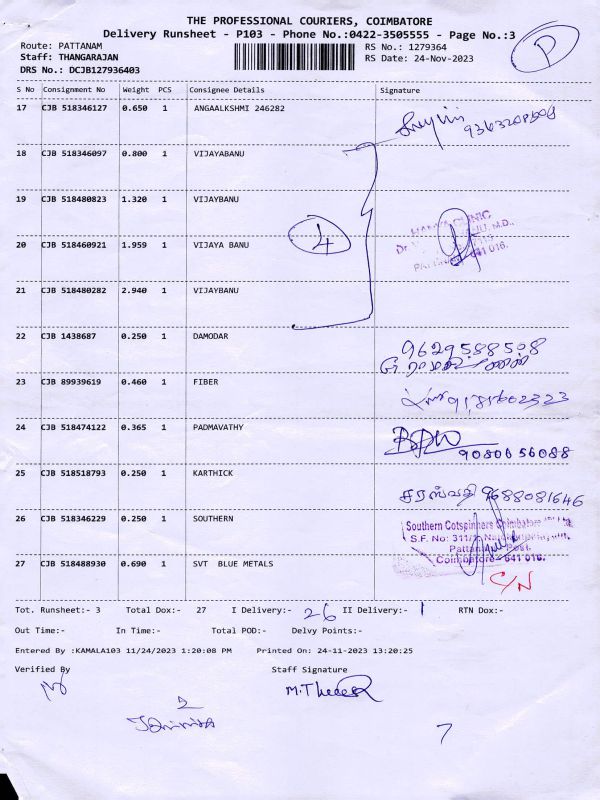 THE PROFESSIONAL COURIERS, COIMBATORE
Delivery Runsheet - P103 - Phone No.:0422-3505555 - Page No.:3
P
Route: PATTANAM
RS No.: 1279364
Staff: THANGARAJAN
RS Date: 24-Nov-2023
DRS No.: DCJB127936403
S No Consignment No Weight PCS Consignee Details Signature
17 CJB 518346127 0.650 1 ANGAALKSHMI 246282
18 CJB 518346097 0.800 1 VIJAYABANU
19 CJB 518480823 1.320 1 VIJAYBANU
4
20 CJB 518460921 1.959 1 VIJAYA BANU
CLINIC
Dr. M.D.,
641 016.
21 CJB 518480282 2.940 1 VIJAYBANU
22 CJB 1438687 0.250 1 DAMODAR
9629588508
23 CJB 89939619 0.460 1 FIBER
24 CJB 518474122 0.365 1 PADMAVATHY
9080656088
25 CJB 518518793 0.250 1 KARTHICK
சரஸ்வதி 9688081646
26 CJB 518346229 0.250 1 SOUTHERN
Southern Cotspinners Coimbatore
S.F. No: 311/1
Pattanam Post.
Coimbatore - 641 016.
27 CJB 518488930 0.690 1 SVT BLUE METALS
C/N
Tot. Runsheet:- 3 Total Dox:- 27 I Delivery:- 26 II Delivery:- 1 RTN Dox:-
Out Time:- In Time:- Total POD:- Delvy Points:-
Entered By :KAMALA103 11/24/2023 1:20:08 PM Printed On: 24-11-2023 13:20:25
Verified By Staff Signature
2
7